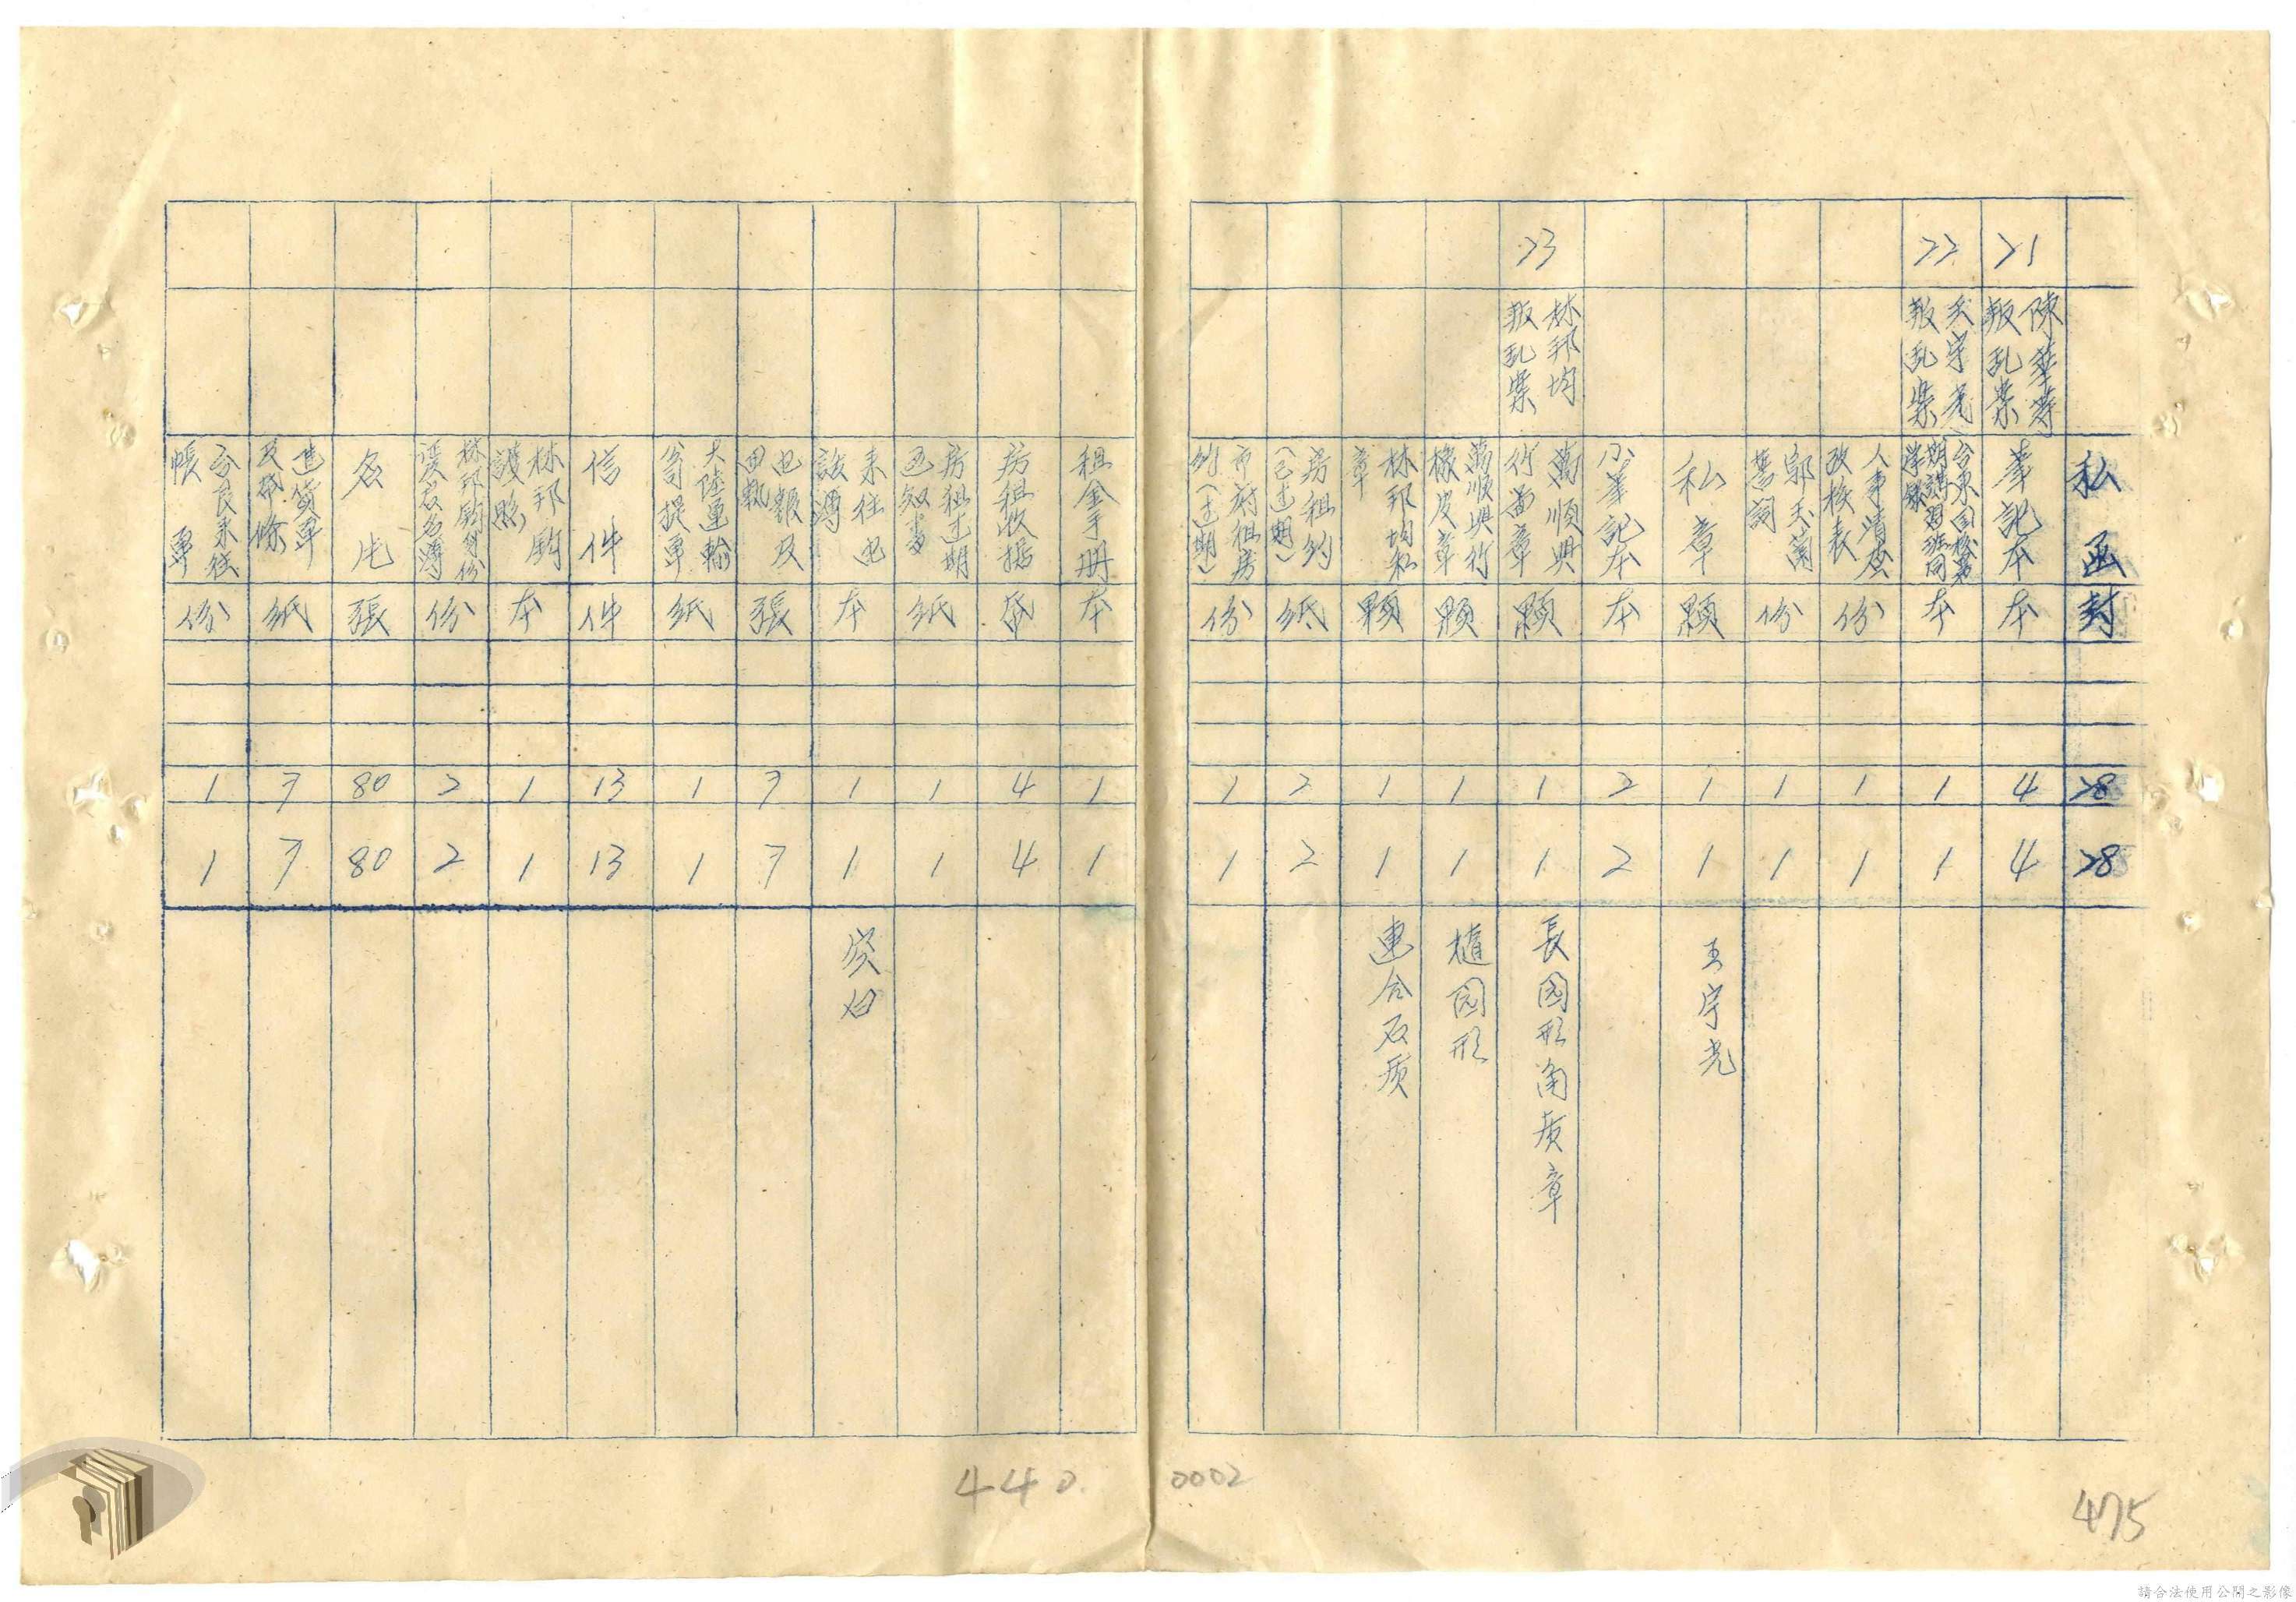 私函 封 28 28
21 陳華﻿ 叛乱案 筆記本 本 4 4
22 王宇光 叛乱案 台東国校第 期講習班同學錄 本 1 1
人事清查 攷核表 份 1 1
郭玉蘭 誓詞 份 1 1
私章 顆 1 1 王宇光
小筆記本 本 2 2
23 林邦均 叛乱案 萬順興 竹苗章 顆 1 1 長園形角质章
萬順興竹 橡皮章 顆 1 1 橢园形
林邦均私章 顆 1 1 連合石质
房租约 (已过期) 纸 2 2
市府租房 约(过期) 份 1 1
租金手册 本 1 1
房租收据 张 4 4
房租过期 通知書 纸 1 1
来往电 話簿 本 1 1 空白
电報及 回執 張 7 7
大陸運輸 公司提單 纸 1 1
信件 件 13 13
林邦鈞 護照 本 1 1
林邦鈞身份 名簿 份 2 2
名片 張 80 80
进貨單 及 條 纸 7 7
来往 帳單 份 1 1
440
0002
475
請合法使用公開之影像